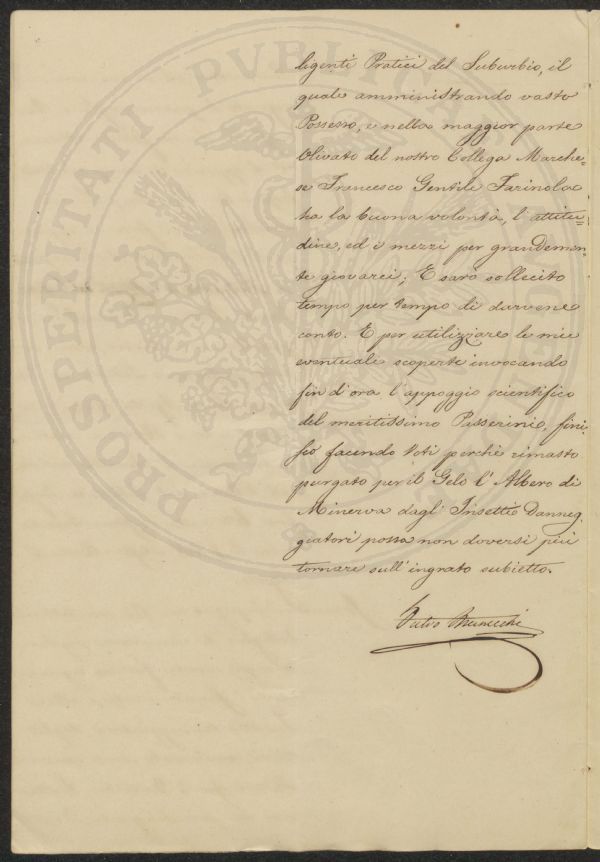 PROSPERITATI PVBLICAE
ligenti Pratici del Suburbio, il
quale amministrando vasto
Possesso, e nella maggior parte
Olivato del nostro Collega Marche=
se Francesco Gentile Farinola
ha la buona volontà, l'attitu=
dine, ed i mezzi per grandemen=
te giovarci; E sarò sollecito
tempo per tempo di darvene
conto. E per utilizzare le mie
eventuali scoperte invocando
fin d'ora l'appoggio scientifico
del meritissimo Passerini, fini=
sco facendo Voti perchè rimasto
purgato per il Gelo l'Albero di
Minerva dagl'Insetti Danneg=
giatori possa non doversi più
tornare sull'ingrato subietto.